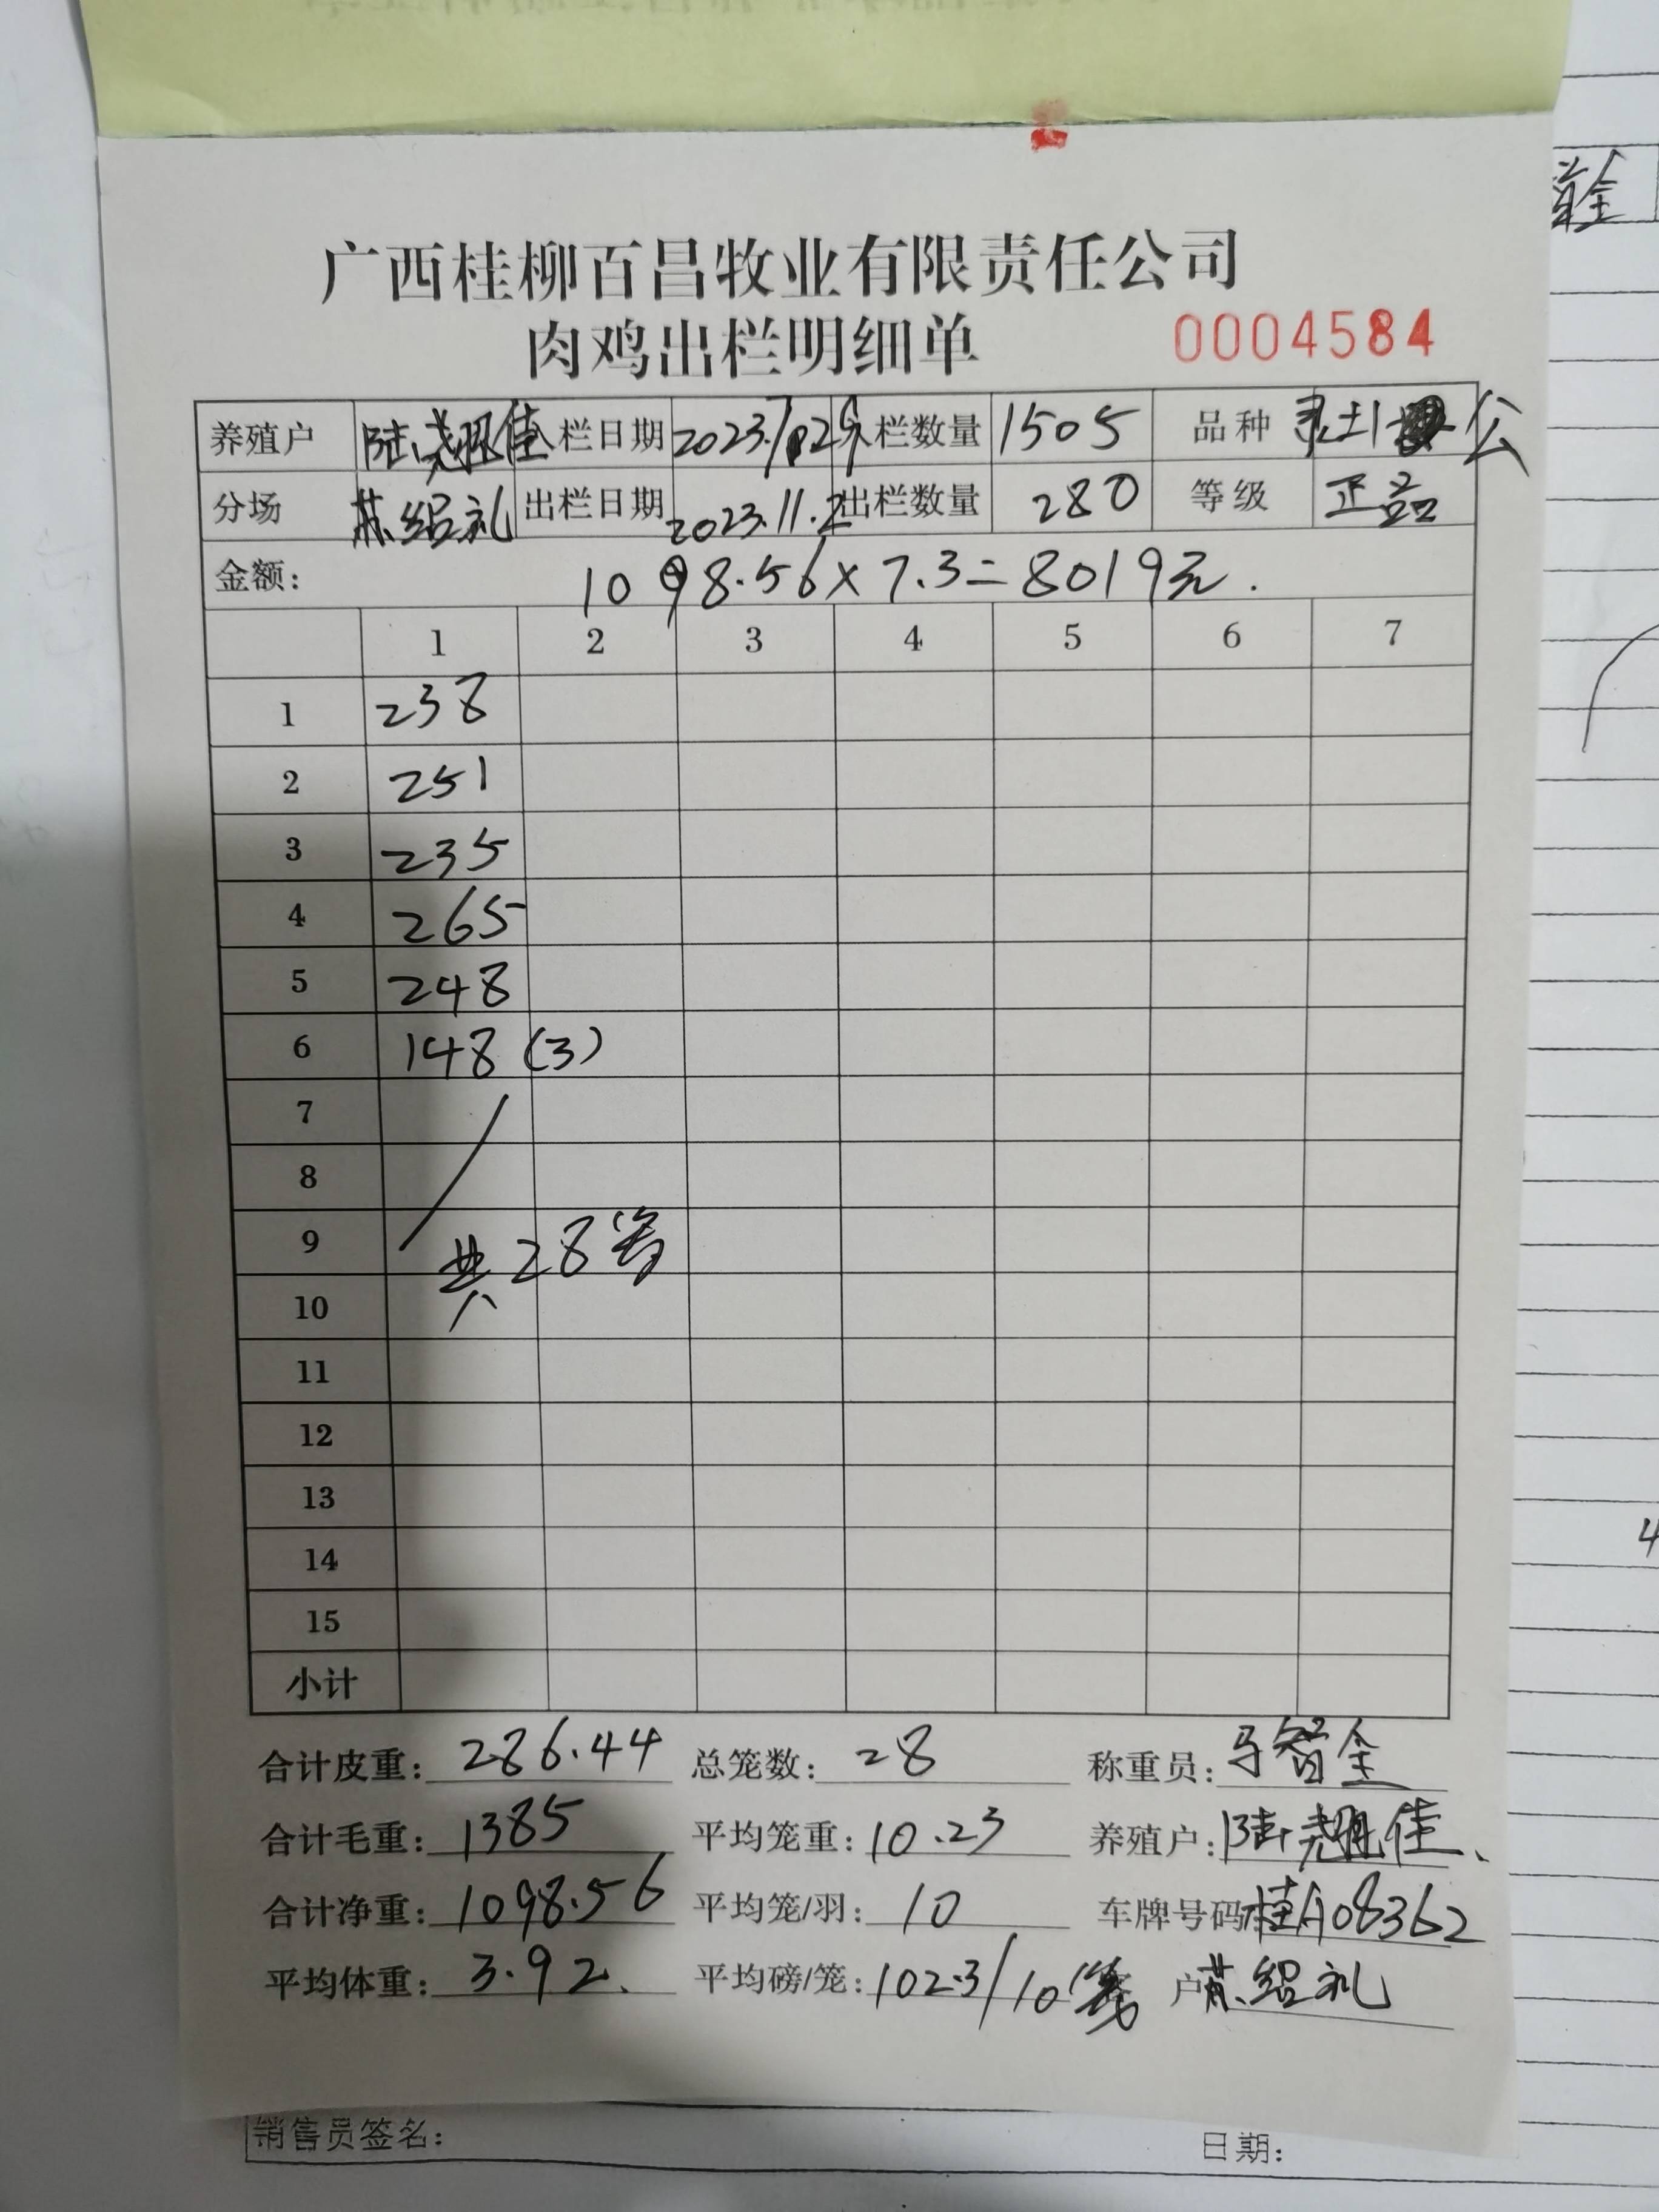 广西桂柳百昌牧业有限责任公司
肉鸡出栏明细单 0004584
养殖户 陆 佳 入栏日期 2023.7 入栏数量 1505 品种 土1 公
分场 苏绍礼 出栏日期 2023.11.2 出栏数量 280 等级 正品
金额: 1098.56×7.3=8019元.
1 2 3 4 5 6 7
1 238
2 251
3 235
4 265
5 248
6 148 (3)
7
8
9 共28
10
11
12
13
14
15
小计
合计皮重: 286.44 总笼数: 28 称重员: 马智全
合计毛重: 1385 平均笼重: 10.23 养殖户: 陆 佳
合计净重: 1098.56 平均笼/羽: 10 车牌号码 桂A08362
平均体重: 3.92 平均磅/笼: 102.3/10 户 苏绍礼
销售员签名: 日期:
智全
4